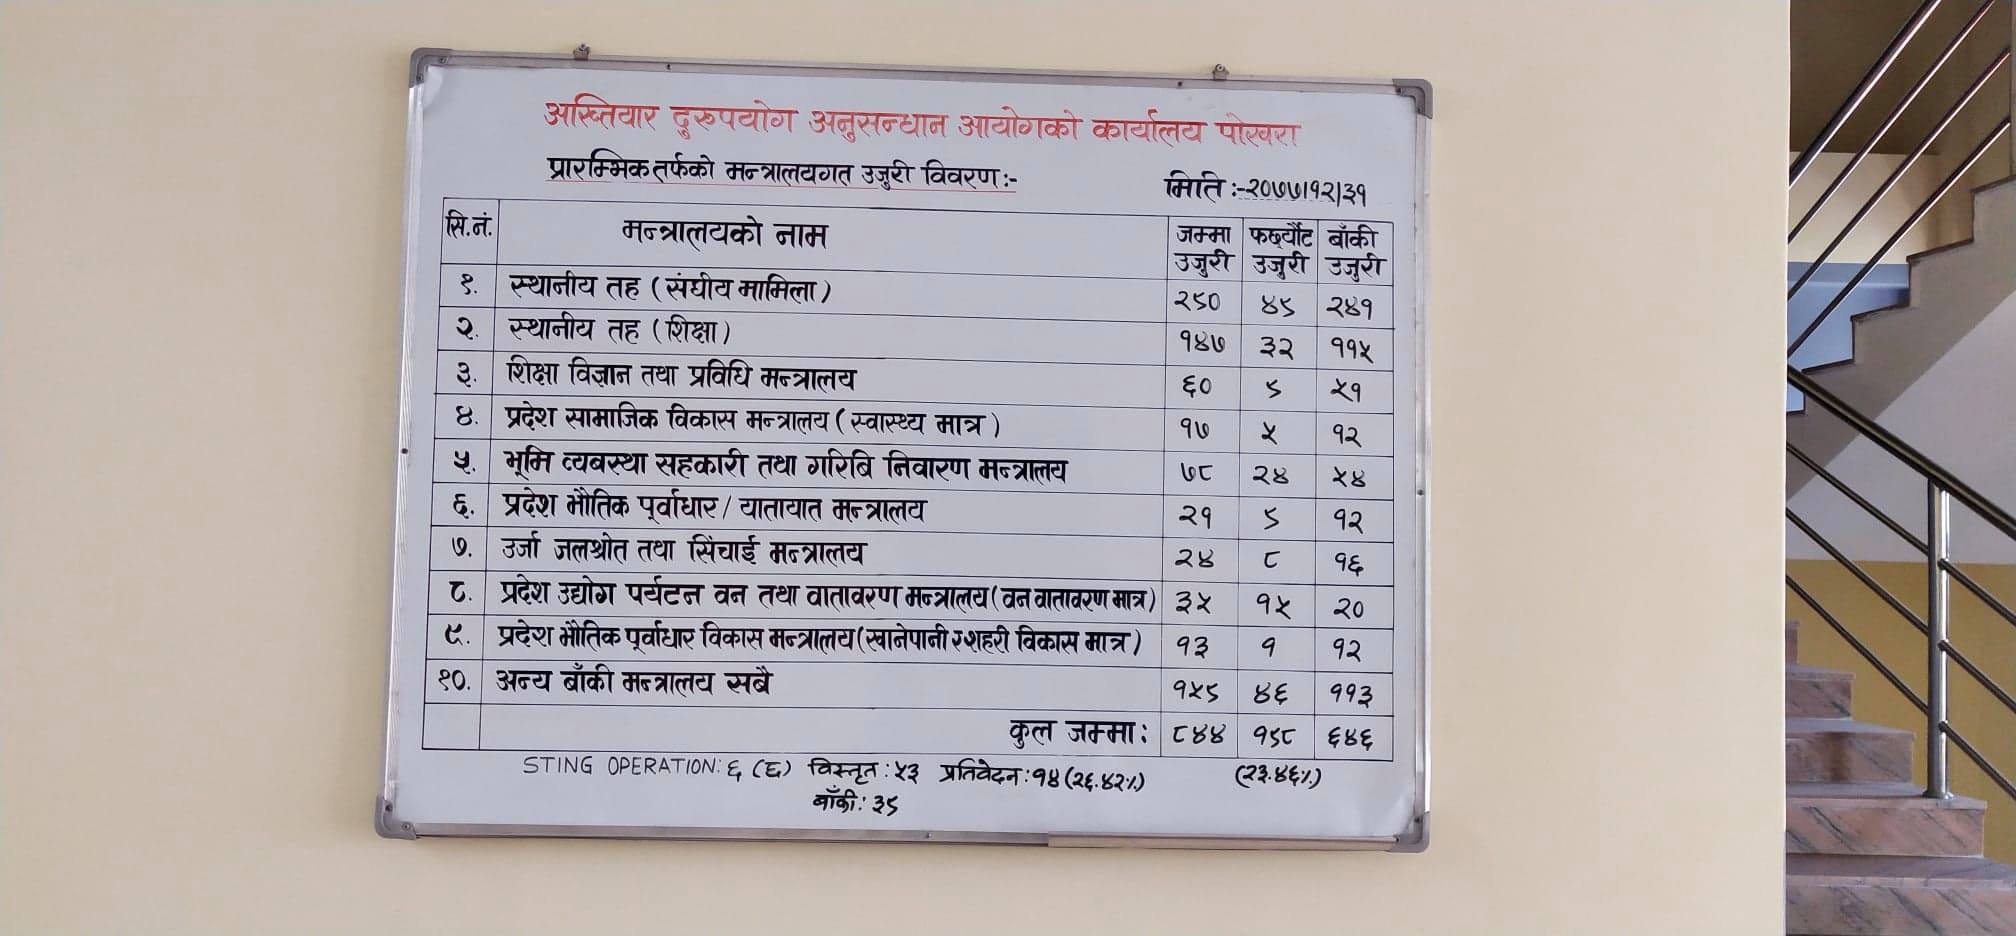 अख्तियार दुरुपयोग अनुसन्धान आयोगको कार्यालय पोखरा
प्रारम्भिक तर्फको मन्त्रालयगत उजुरी विवरण :-
मिति :- २०७७।१२।३१
सि.नं. मन्त्रालयको नाम जम्मा उजुरी फर्छ्यौट उजुरी बाँकी उजुरी
१. स्थानीय तह (संघीय मामिला) २९० ४९ २४१
२. स्थानीय तह (शिक्षा) १४७ ३२ ११५
३. शिक्षा विज्ञान तथा प्रविधि मन्त्रालय ६० ९ ५१
४. प्रदेश सामाजिक विकास मन्त्रालय (स्वास्थ्य मात्र) १७ ५ १२
५. भूमि व्यवस्था सहकारी तथा गरिबि निवारण मन्त्रालय ७८ २४ ५४
६. प्रदेश भौतिक पूर्वाधार / यातायात मन्त्रालय २१ ९ १२
७. उर्जा जलश्रोत तथा सिंचाई मन्त्रालय २४ ८ १६
८. प्रदेश उद्योग पर्यटन वन तथा वातावरण मन्त्रालय (वन वातावरण मात्र) ३५ १५ २०
९. प्रदेश भौतिक पूर्वाधार विकास मन्त्रालय (खानेपानी र शहरी विकास मात्र) १३ १ १२
१०. अन्य बाँकी मन्त्रालय सबै १५९ ४६ ११३
कुल जम्मा : ८४४ १९८ ६४६
STING OPERATION: ६ (६) विस्तृत : ५३ प्रतिवेदन : १४ (२६.४२%) (२३.४६%)
बाँकी : ३९